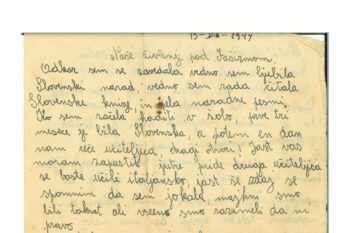 15-III-1947
Naše življenje pod Fašizmom.
Odkar sem se zavedala vedno sem ljubila
Slovenski narod, vedno sem rada čitala
Slovenske knjig in pela narodne pesmi.
Ko sem začela haditi v šolo, prve tri
mesece je bila Slovenska, a potem en dan
nam reče učiteljica dragi otroci, jast vas
moram zapustit jutre pride druga učiteljica
se boste učili italjansko, jast še zdaj se
spomnim da sem jokala, majhni smo
bili takrat ali vseeno smo razumeli da ni
pravo